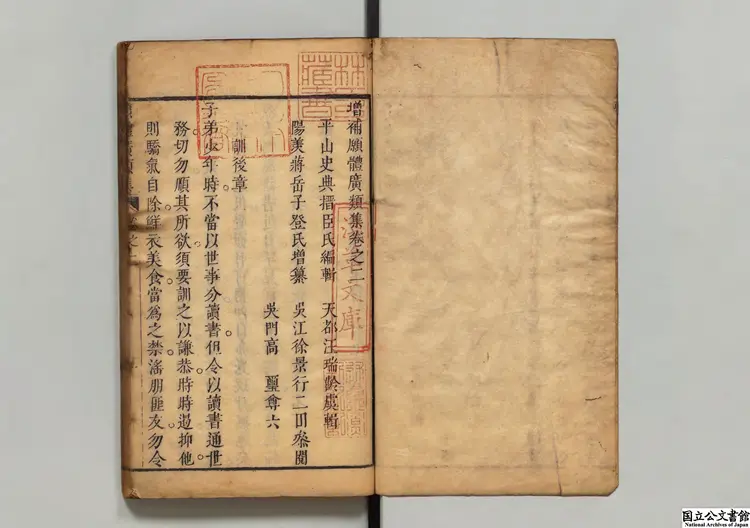 增補願體廣類集卷之二
平山史典搢臣氏編輯 天都汪瑞齡虞輯
陽羨蔣岳子登氏增纂 吳江徐景行二田叅閱
吳門高 尊六
訓後章
子弟少年時不當以世事分讀書但令以讀書通世
務切勿願其所欲須要訓之以謙恭時時遏抑他
則驕氣自除鮮衣美食當爲之禁淫朋匪友勿令
淺草文庫
国立公文書館
National Archives of Japan